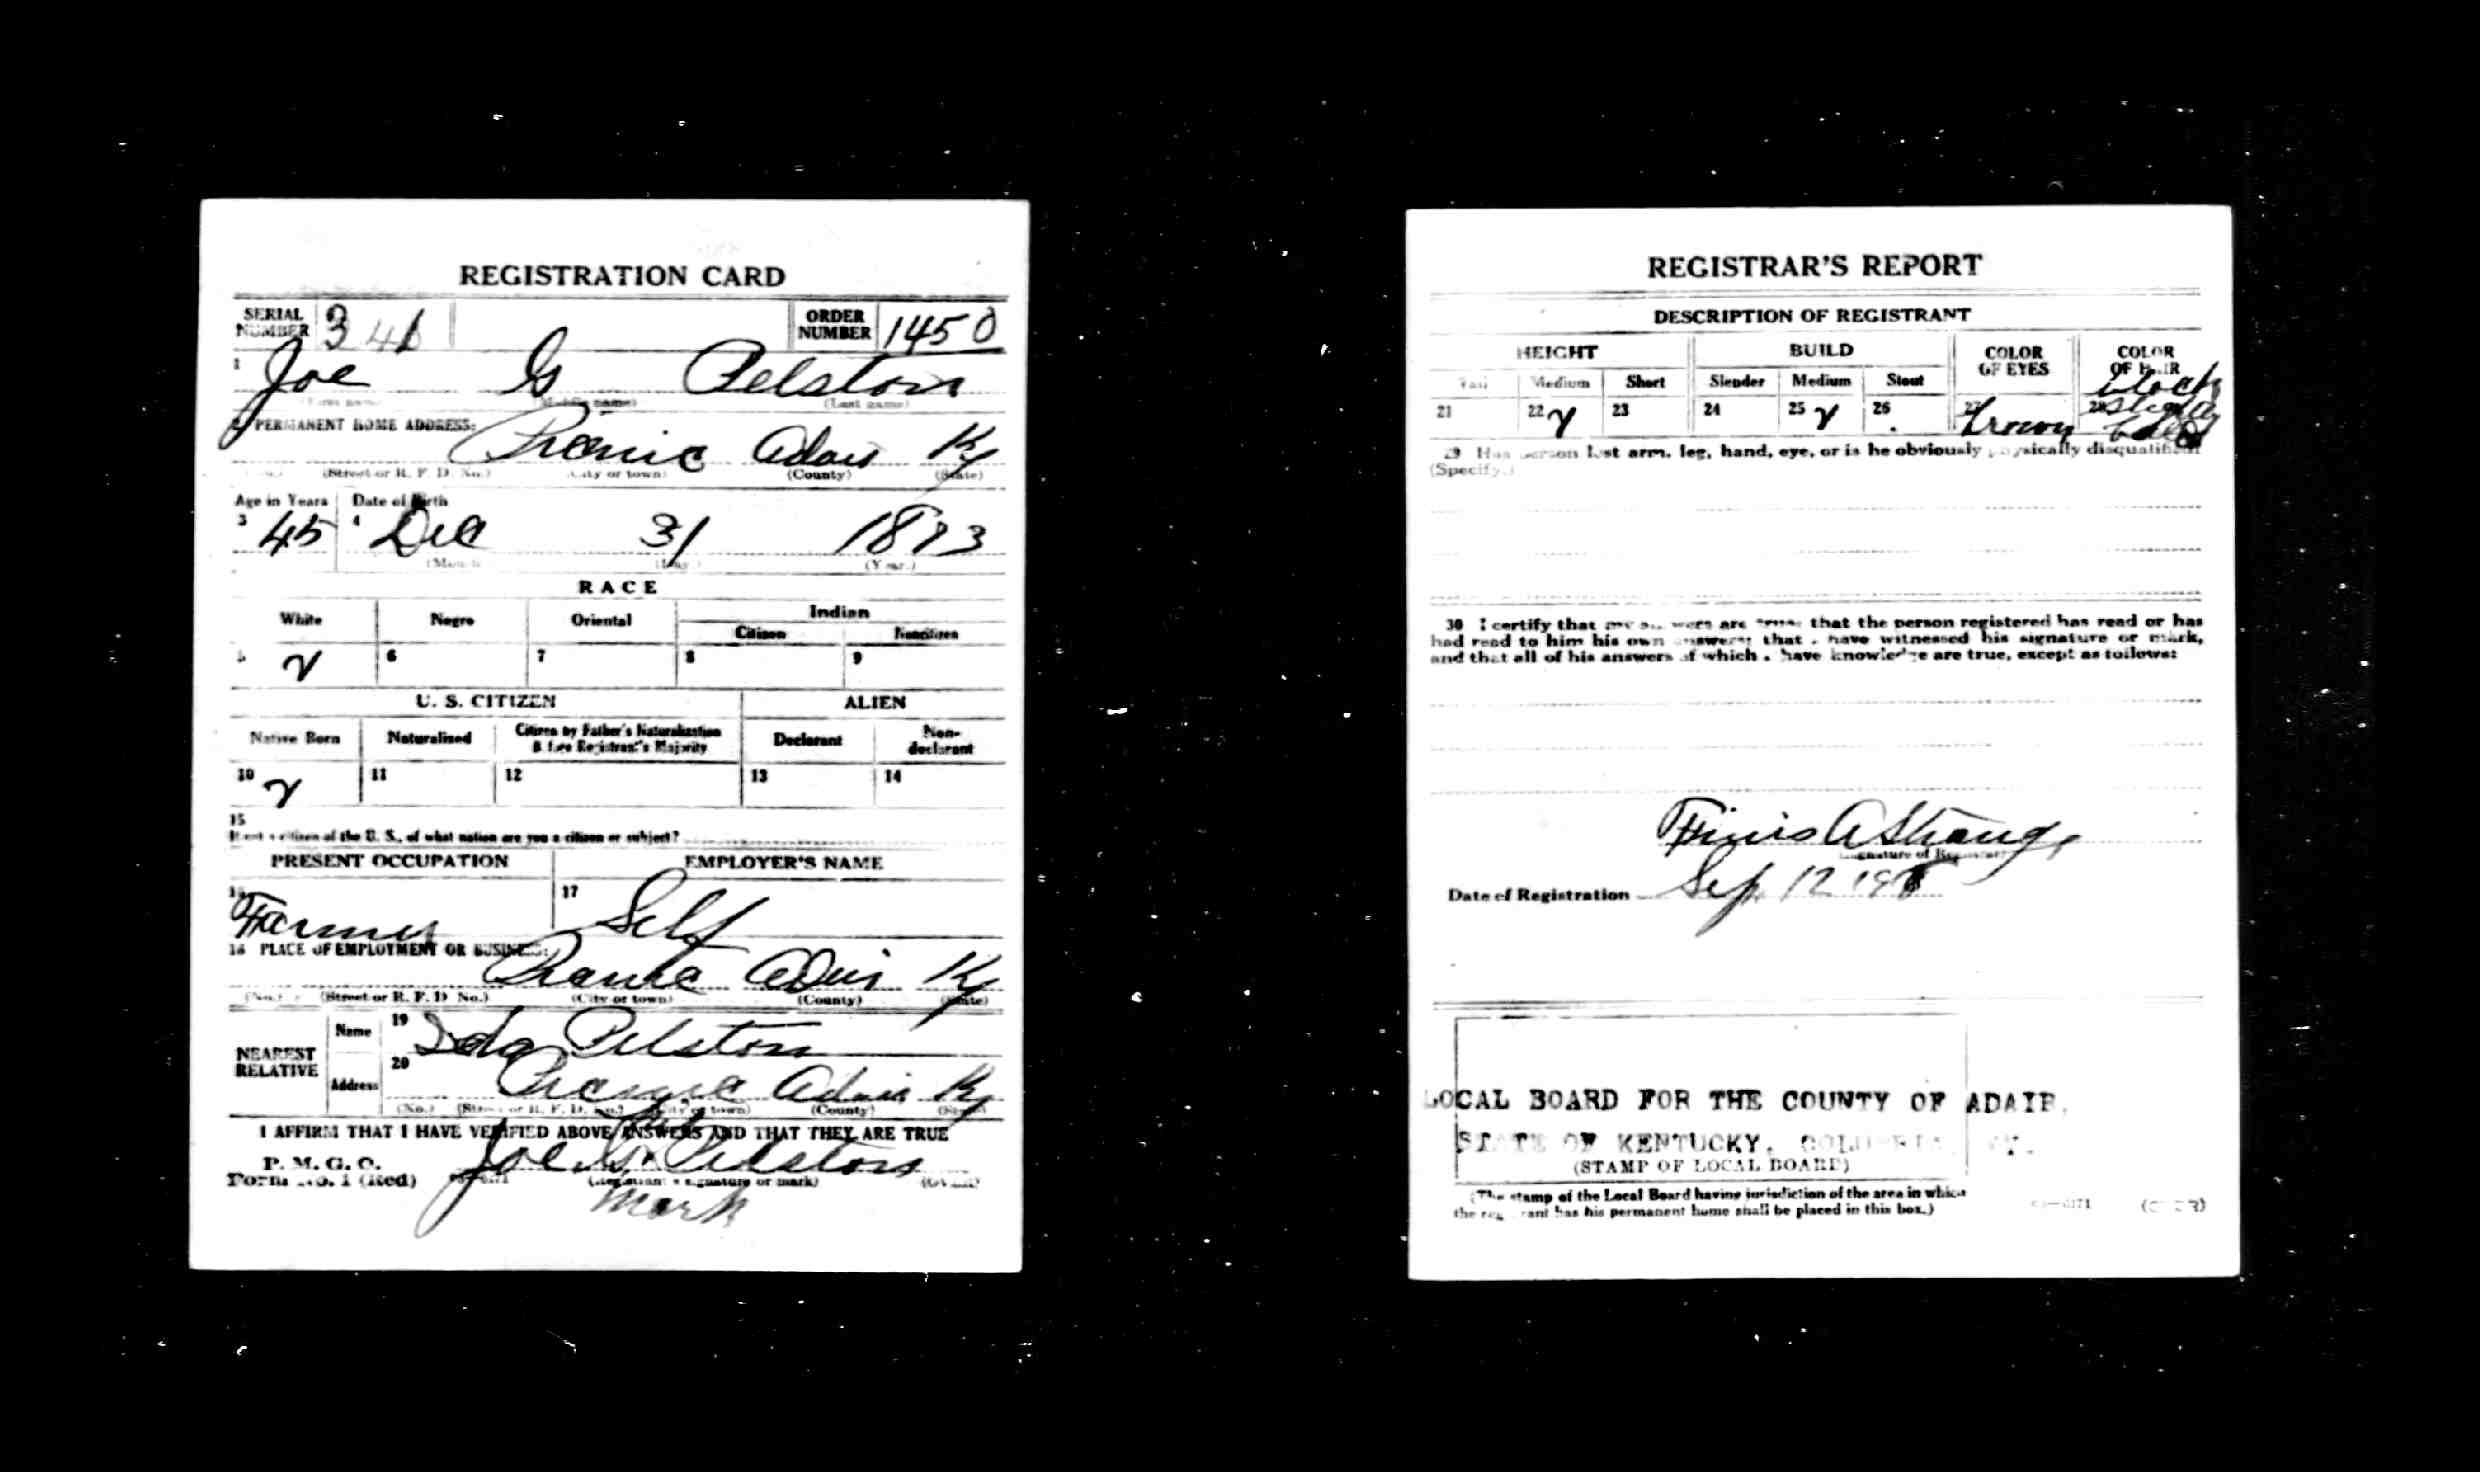 REGISTRATION CARD
SERIAL NUMBER 341 ORDER NUMBER 1450
1 Joe G Pelston
(First name) (Middle name) (Last name)
2 PERMANENT HOME ADDRESS:
Adair Ky
(No.) (Street or R. F. D. No.) (City or town) (County) (State)
Age in Years Date of Birth
3 45 4 Dec 31 1873
(Month) (Day.) (Year.)
RACE
White Negro Oriental Indian
Citizen Noncitizen
5 6 7 8 9
U. S. CITIZEN ALIEN
Native Born Naturalized Citizen by Father's Naturalization Before Registrant's Majority Declarant Non-declarant
10 11 12 13 14
15
If not a citizen of the U. S., of what nation are you a citizen or subject?
PRESENT OCCUPATION EMPLOYER'S NAME
16 Farmer 17 Self
18 PLACE OF EMPLOYMENT OR BUSINESS:
Adair Ky
(No.) (Street or R. F. D. No.) (City or town) (County) (State)
NEAREST RELATIVE
Name 19 Ida Pelston
Address 20 Adair Ky
(No.) (Street or R. F. D. No.) (City or town) (County) (State)
I AFFIRM THAT I HAVE VERIFIED ABOVE ANSWERS AND THAT THEY ARE TRUE
P. M. G. O.
Form No. 1 (Red) Joe G. Pelston
(Registrant's signature or mark) (OVER)
mark
REGISTRAR'S REPORT
DESCRIPTION OF REGISTRANT
HEIGHT BUILD COLOR OF EYES COLOR OF HAIR
Tall Medium Short Slender Medium Stout
21 22 23 24 25 26 27 brown 28 black slightly bald
29 Has person lost arm, leg, hand, eye, or is he obviously physically disqualified?
(Specify.)
30 I certify that my answers are true; that the person registered has read or has
had read to him his own answers; that I have witnessed his signature or mark,
and that all of his answers of which I have knowledge are true, except as follows:
Finis A Strange
(Signature of Registrar)
Date of Registration Sep 12 1918
LOCAL BOARD FOR THE COUNTY OF ADAIR,
STATE OF KENTUCKY, COLUMBIA, KY.
(STAMP OF LOCAL BOARD)
(The stamp of the Local Board having jurisdiction of the area in which
the registrant has his permanent home shall be placed in this box.)
(OVER)